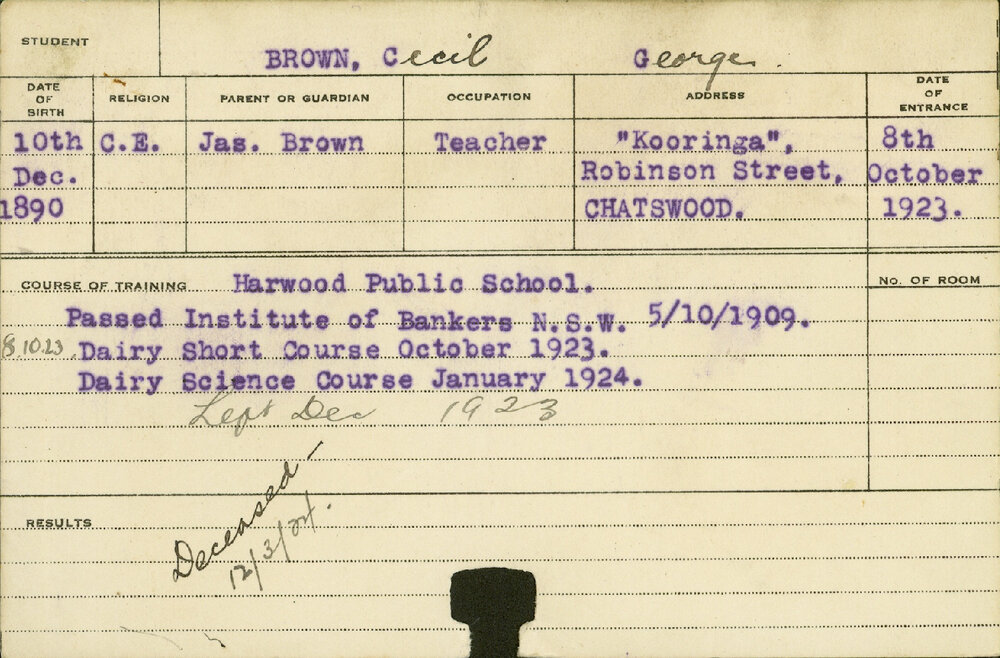 STUDENT
BROWN, Cecil George.
DATE OF BIRTH
RELIGION
PARENT OR GUARDIAN
OCCUPATION
ADDRESS
DATE OF ENTRANCE
10th Dec. 1890
C.E.
Jas. Brown
Teacher
"Kooringa",
Robinson Street,
CHATSWOOD.
8th October 1923.
COURSE OF TRAINING Harwood Public School.
No. OF ROOM
Passed Institute of Bankers N.S.W. 5/10/1909.
8 10.23 Dairy Short Course October 1923.
Dairy Science Course January 1924.
Left Dec 1923
RESULTS
Deceased —
12/3/24.